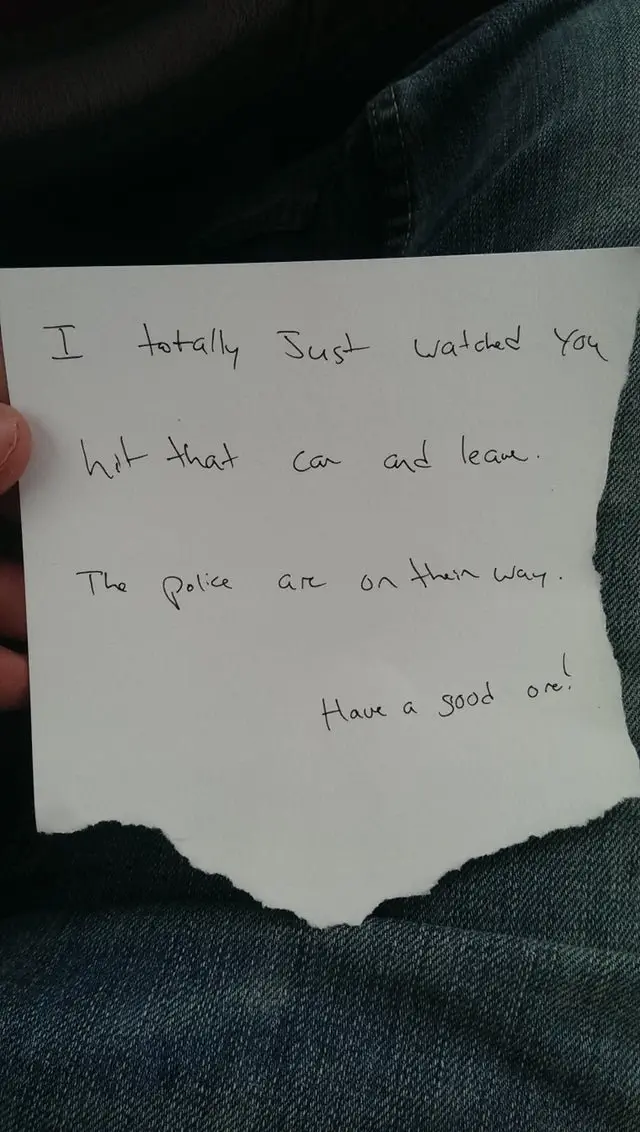 I totally Just watched You
hit that car and leave.
The police are on their way.
Have a good one!